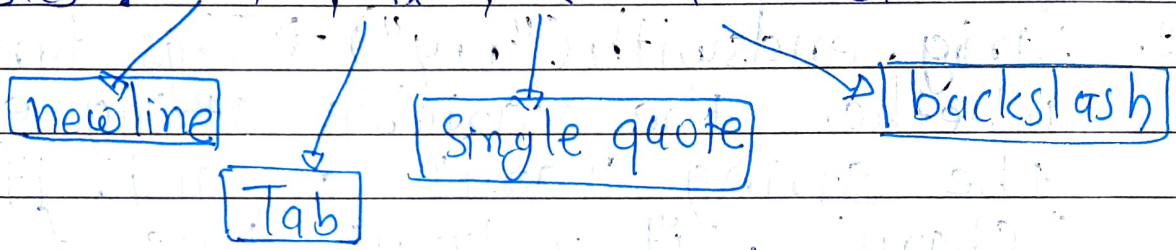 newline
Single quote
backslash
Tab